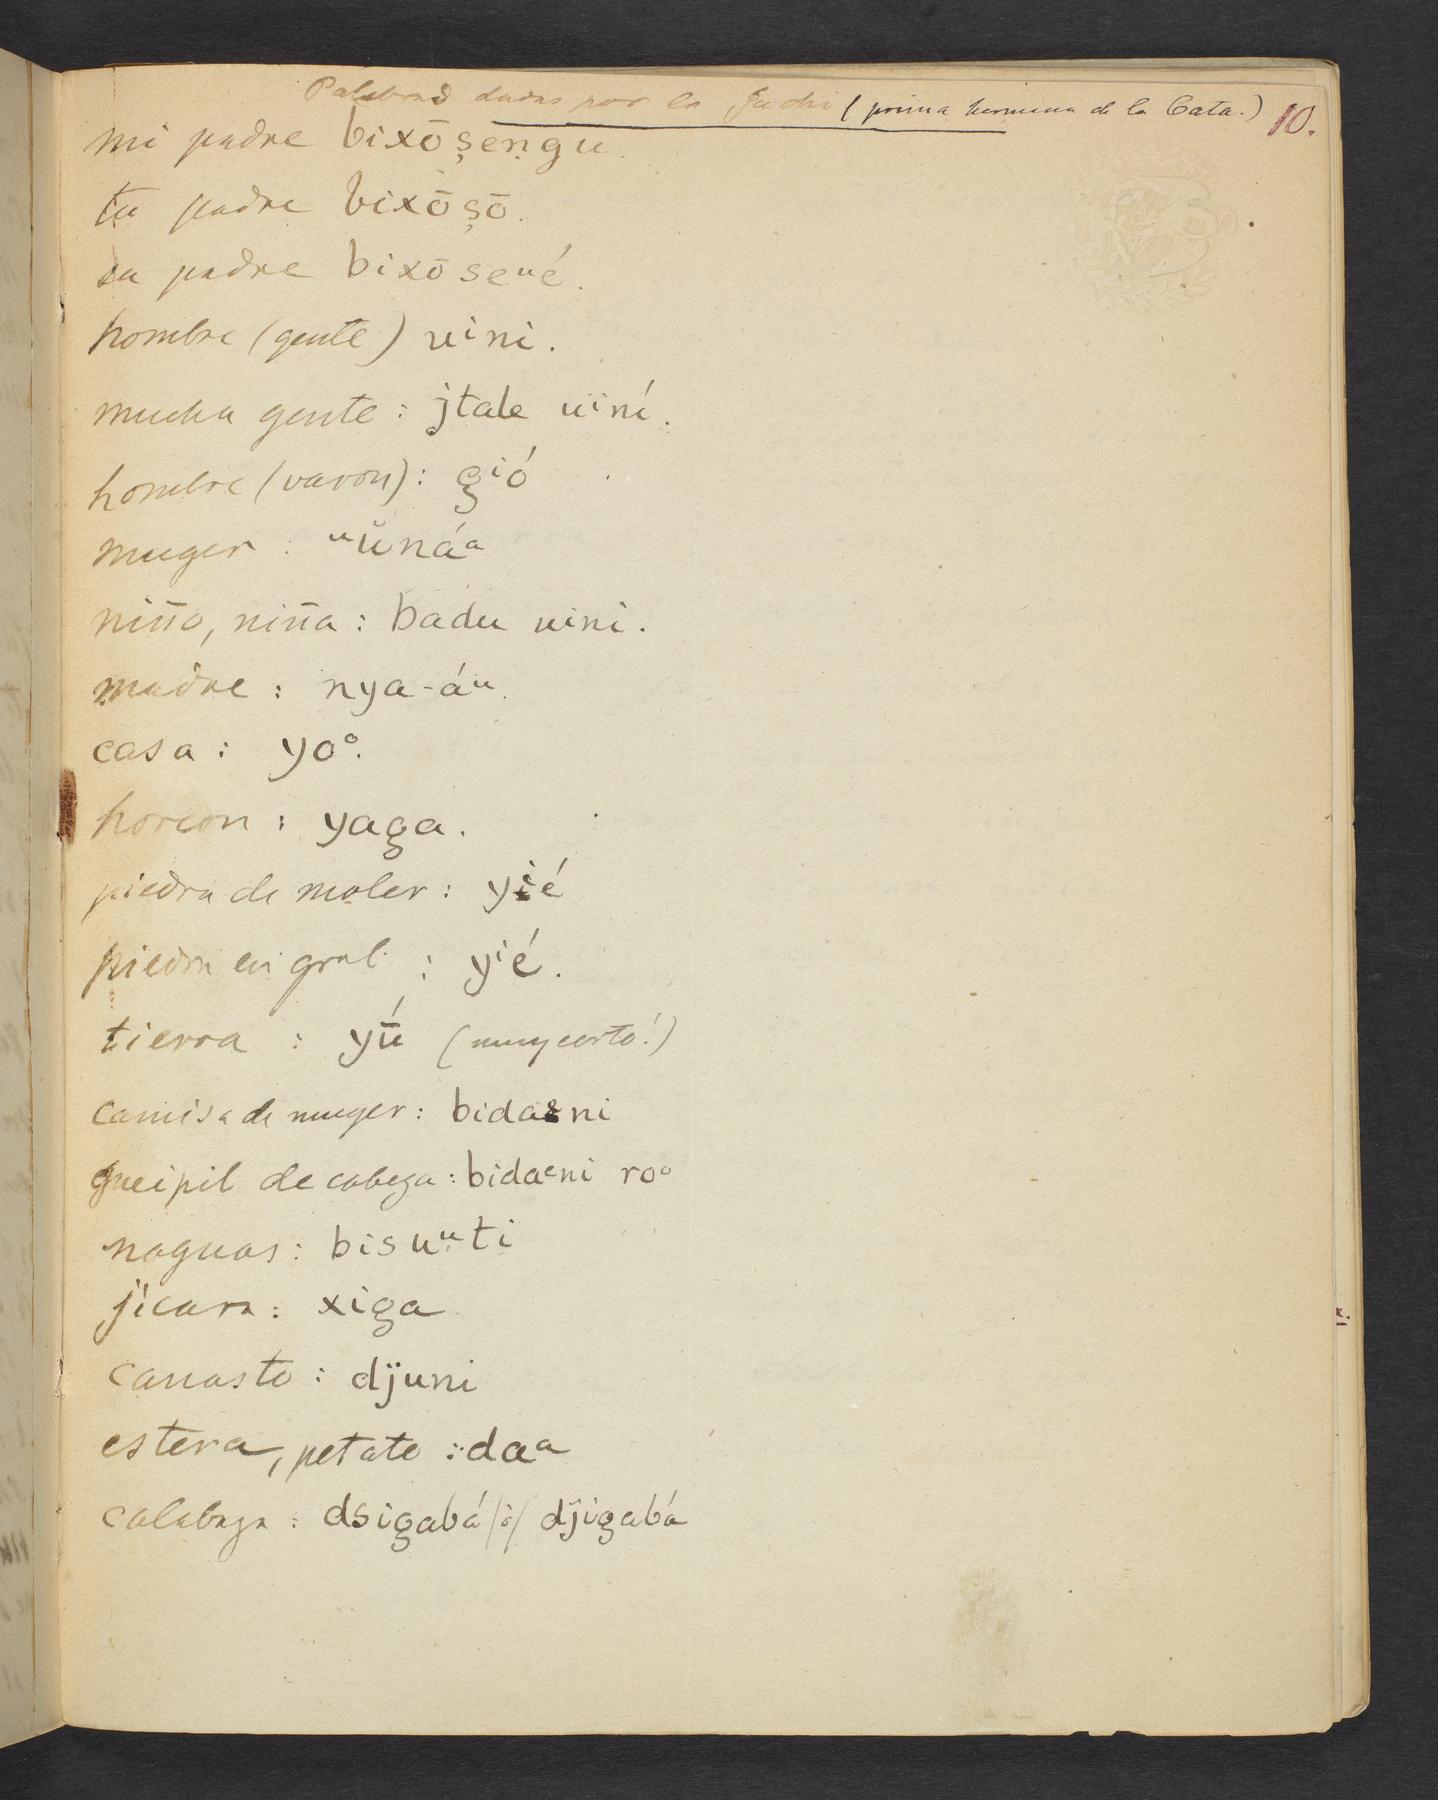 Palabras dadas por la Juchi (prima hermana de la Cata.) 10.
mi padre bixōşengu.
tu padre bixōşō.
su padre bixōseᵘé.
hombre (gente) uⁱni.
mucha gente: jtale uⁱní.
hombre (varon): gⁱó
muger: ᵘŭnáᵃ
niño, niña: badu uini.
madre: nya-áᵘ.
casa: yoᵒ.
horcon: yaga.
piedra de moler: yié
piedra en gral: yⁱé.
tierra: yū́ (muy corto!)
camisa de muger: bidaani
gueipil de cabeza: bidaᵉni roᵒ
naguas: bisuᵘti
jicara: xiga
canasto: dj̈uni
estera, petate: daᵃ
calabaza: dsigabá /ó/ dj̈igabá